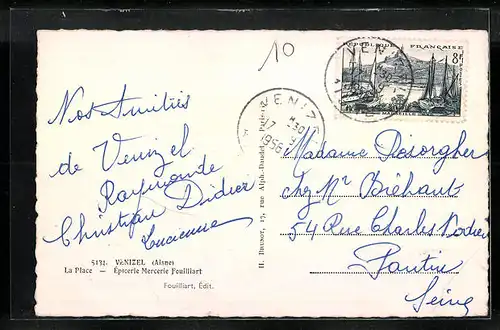 10
RÉPUBLIQUE FRANÇAISE
8f
VENIZEL
17 -9
1956
Nos Amitiés
de Venizel
Raymonde
Christian Didier
Lucienne
Madame Résorgher
chez Mr Bréhant
54 Rue Charles Nodier
Pantin
Seine
H. Brunot, 17, rue Alph.-Daudet, Paris
5134. VENIZEL (Aisne)
La Place — Épicerie Mercerie Fouilliart
Fouilliart, Édit.